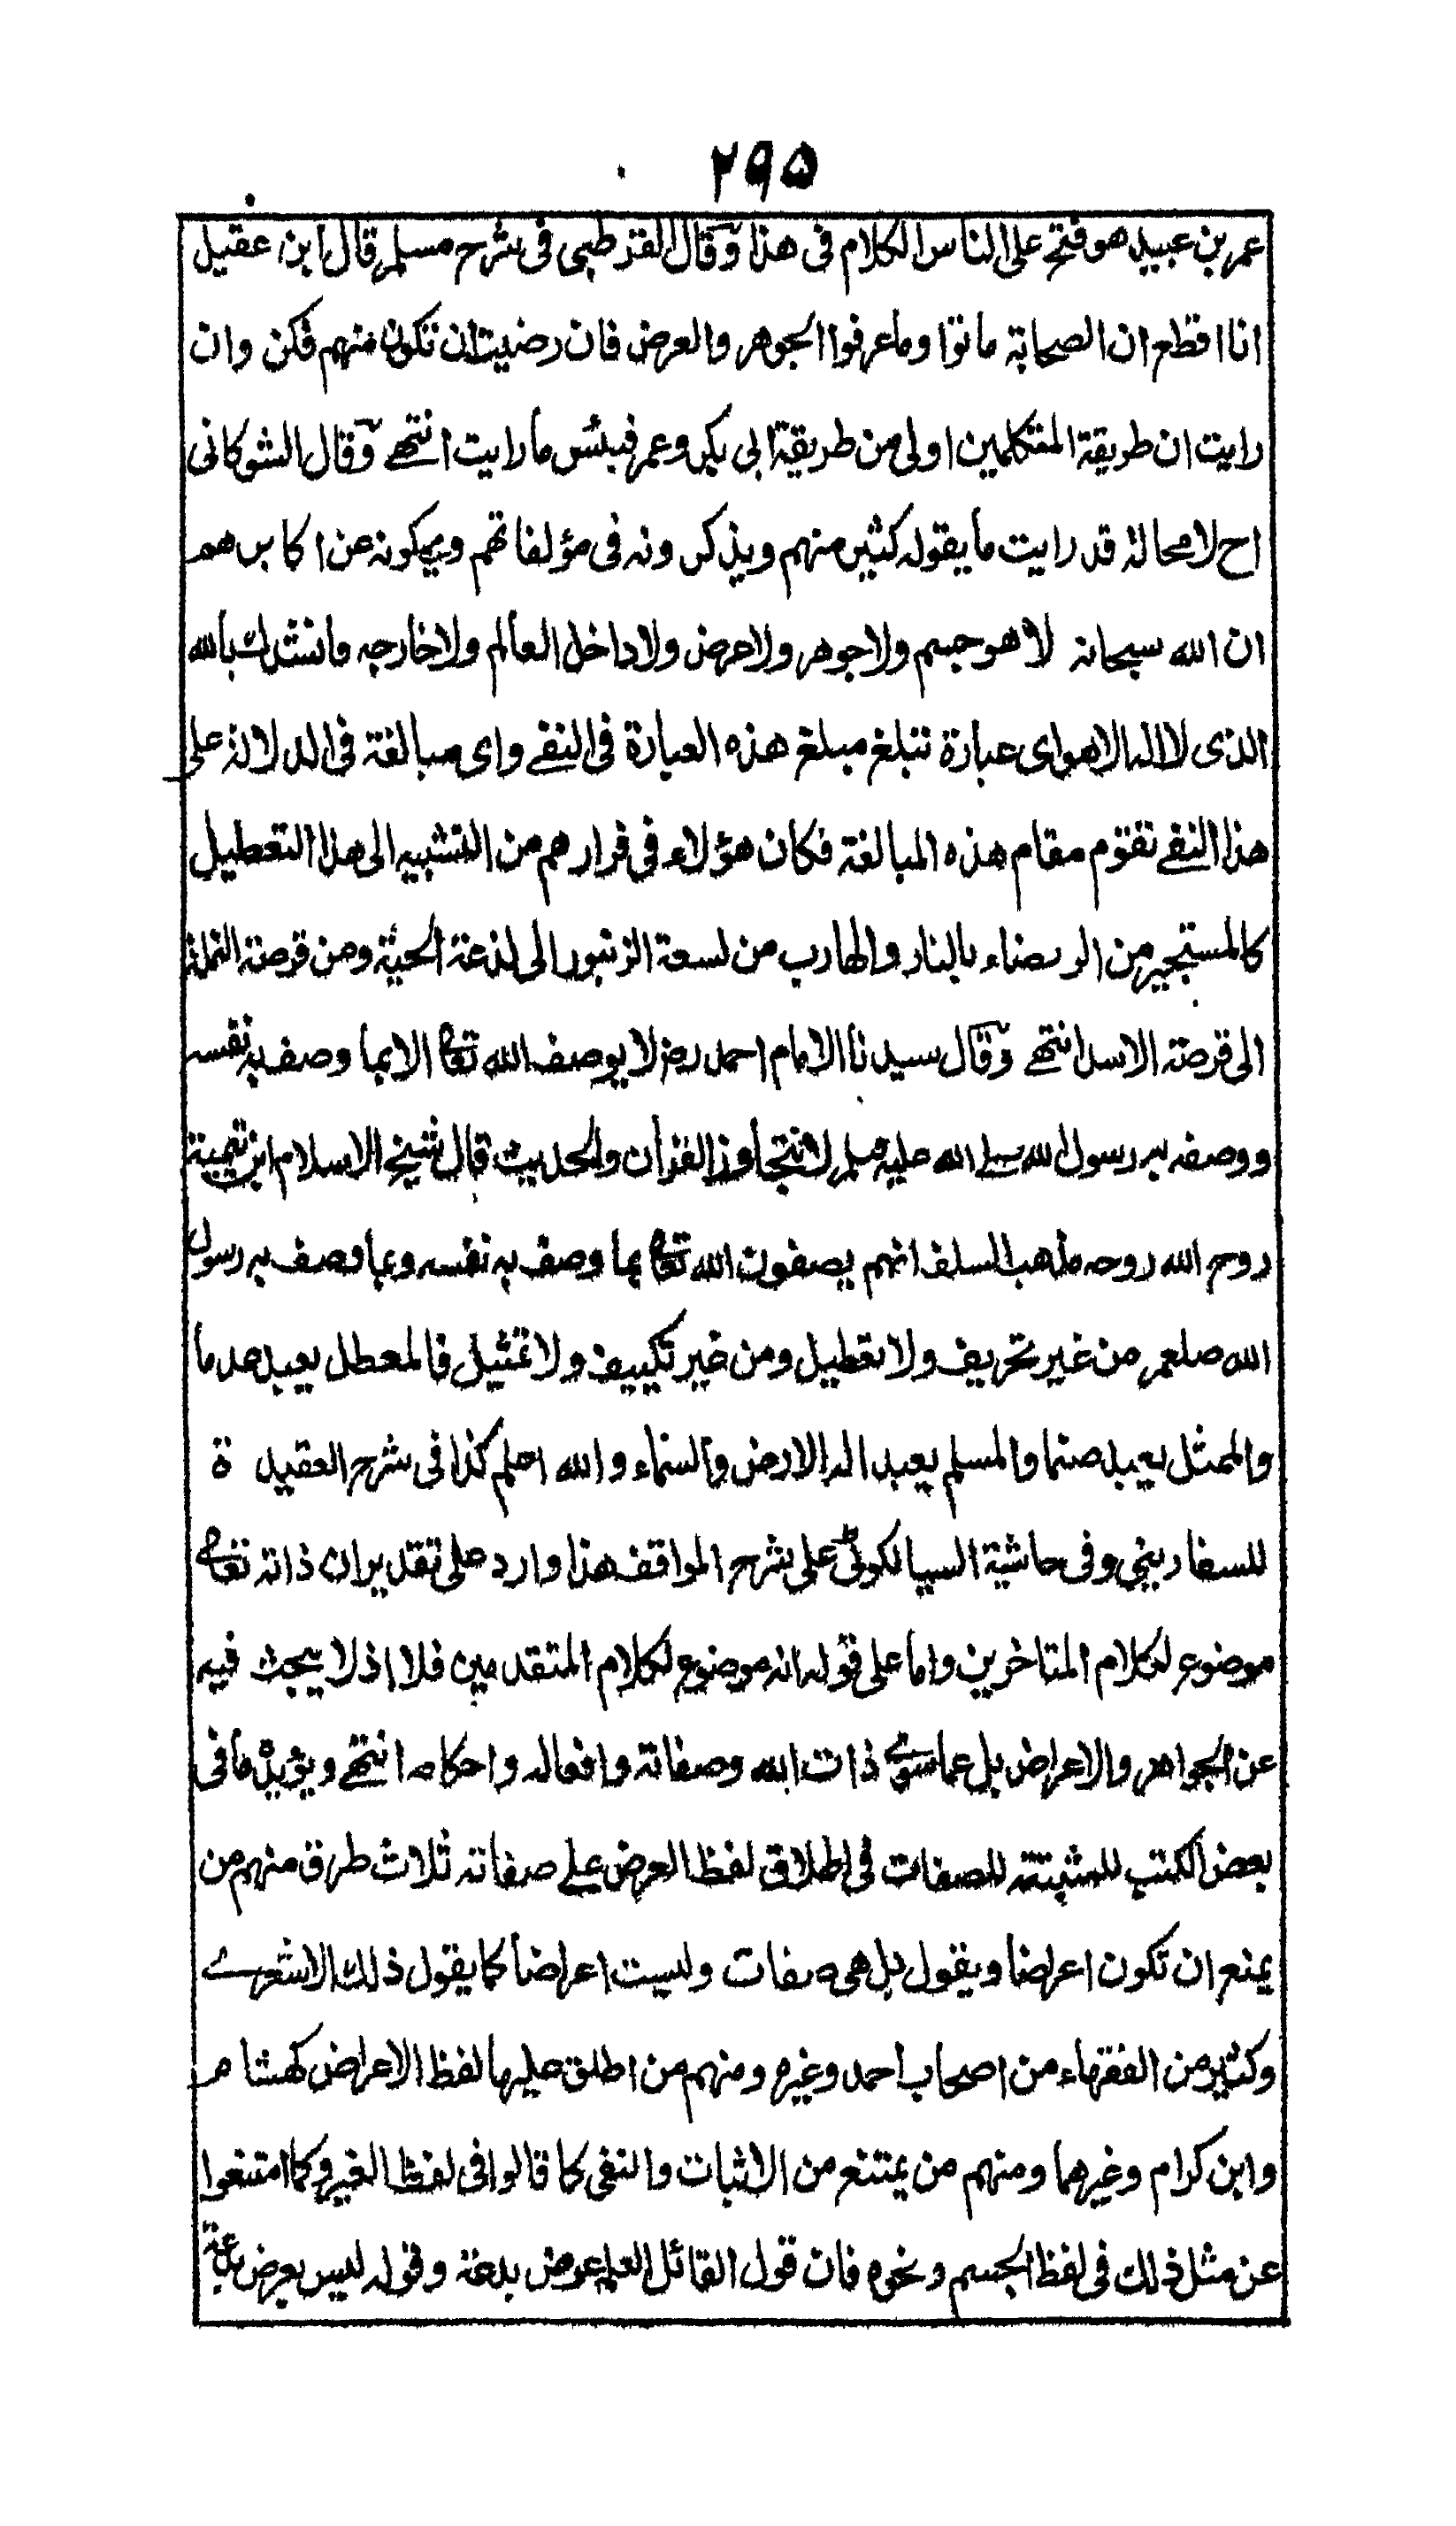 ٢٩٥
عمر بن عبيد هو فتح على الناس الكلام فى هذا وقال القرطبى فى شرح مسلم قال ابن عقيل
انا اقطع ان الصحابة ماتوا وما عرفوا الجوهر والعرض فان رضيت ان تكون منهم فكن وان
رايت ان طريقة المتكلمين اولى من طريقة ابى بكر وعمر فبئس ما رايت انتهے وقال الشوكانى
اح لا محالة قد رايت ما يقوله كثير منهم ويذكرونه فى مؤلفاتهم ويحكونه عن اكابرهم
ان الله سبحانه لا هو جسم ولا جوهر ولا عرض ولا داخل العالم ولا خارجه فانشدك بالله
الذى لا اله الا هو اى عبارة تبلغ مبلغ هذه العبارة فى النفے واى مبالغة فى الدلالة على
هذا النفے تقوم مقام هذه المبالغة فكان هؤلاء فى فرارهم من التشبيه الى هذا التعطيل
كالمستجير من الرمضاء بالنار والهارب من لسعة الزنبور الى لذعة الحية ومن قرصة النملة
الى قرصة الاسد انتهے وقال سيدنا الامام احمد رض لا يوصف الله تعالے الا بما وصف به نفسه
ووصفه به رسول الله صلے الله عليه وسلم لا نتجاوز القرأن والحديث قال شيخ الاسلام ابن تيمية
روح الله روحه مذهب السلف انهم يصفون الله تعالے بما وصف به نفسه وبما وصف به رسول
الله صلعم من غير تحريف ولا تعطيل ومن غير تكييف ولا تمثيل فالمعطل يعبد عدما
والممثل يعبد صنما والمسلم يعبد اله الارض والسماء والله اعلم كذا فى شرح العقيدة
للسفارينى وفى حاشية السيالكوٹى على شرح المواقف هذا وارد على تقدير ان ذاته تعالے
موضوع لكلام المتاخرين واما على قوله انه موضوع لكلام المتقدمين فلا اذ لا يبحث فيه
عن الجواهر والاعراض بل عما سوے ذات الله وصفاته وافعاله واحكامه انتهے ويؤيده ما فى
بعض الكتب للمثبتة للصفات فى اطلاق لفظ العرض علے صفاته ثلاث طرق منهم من
يمنع ان تكون اعراضا ويقول بل هى صفات وليست اعراضا كما يقول ذلك الاشعرے
وكثير من الفقهاء من اصحاب احمد وغيره ومنهم من اطلق عليها لفظ الاعراض كهشام
وابن كرام وغيرهما ومنهم من يمتنع من الاثبات والنفى كما قالوا فى لفظ الغير وكما امتنعوا
عن مثل ذلك فى لفظ الجسم ونحوه فان قول القائل العلم عرض بدعة وقوله ليس بعرض بدعة